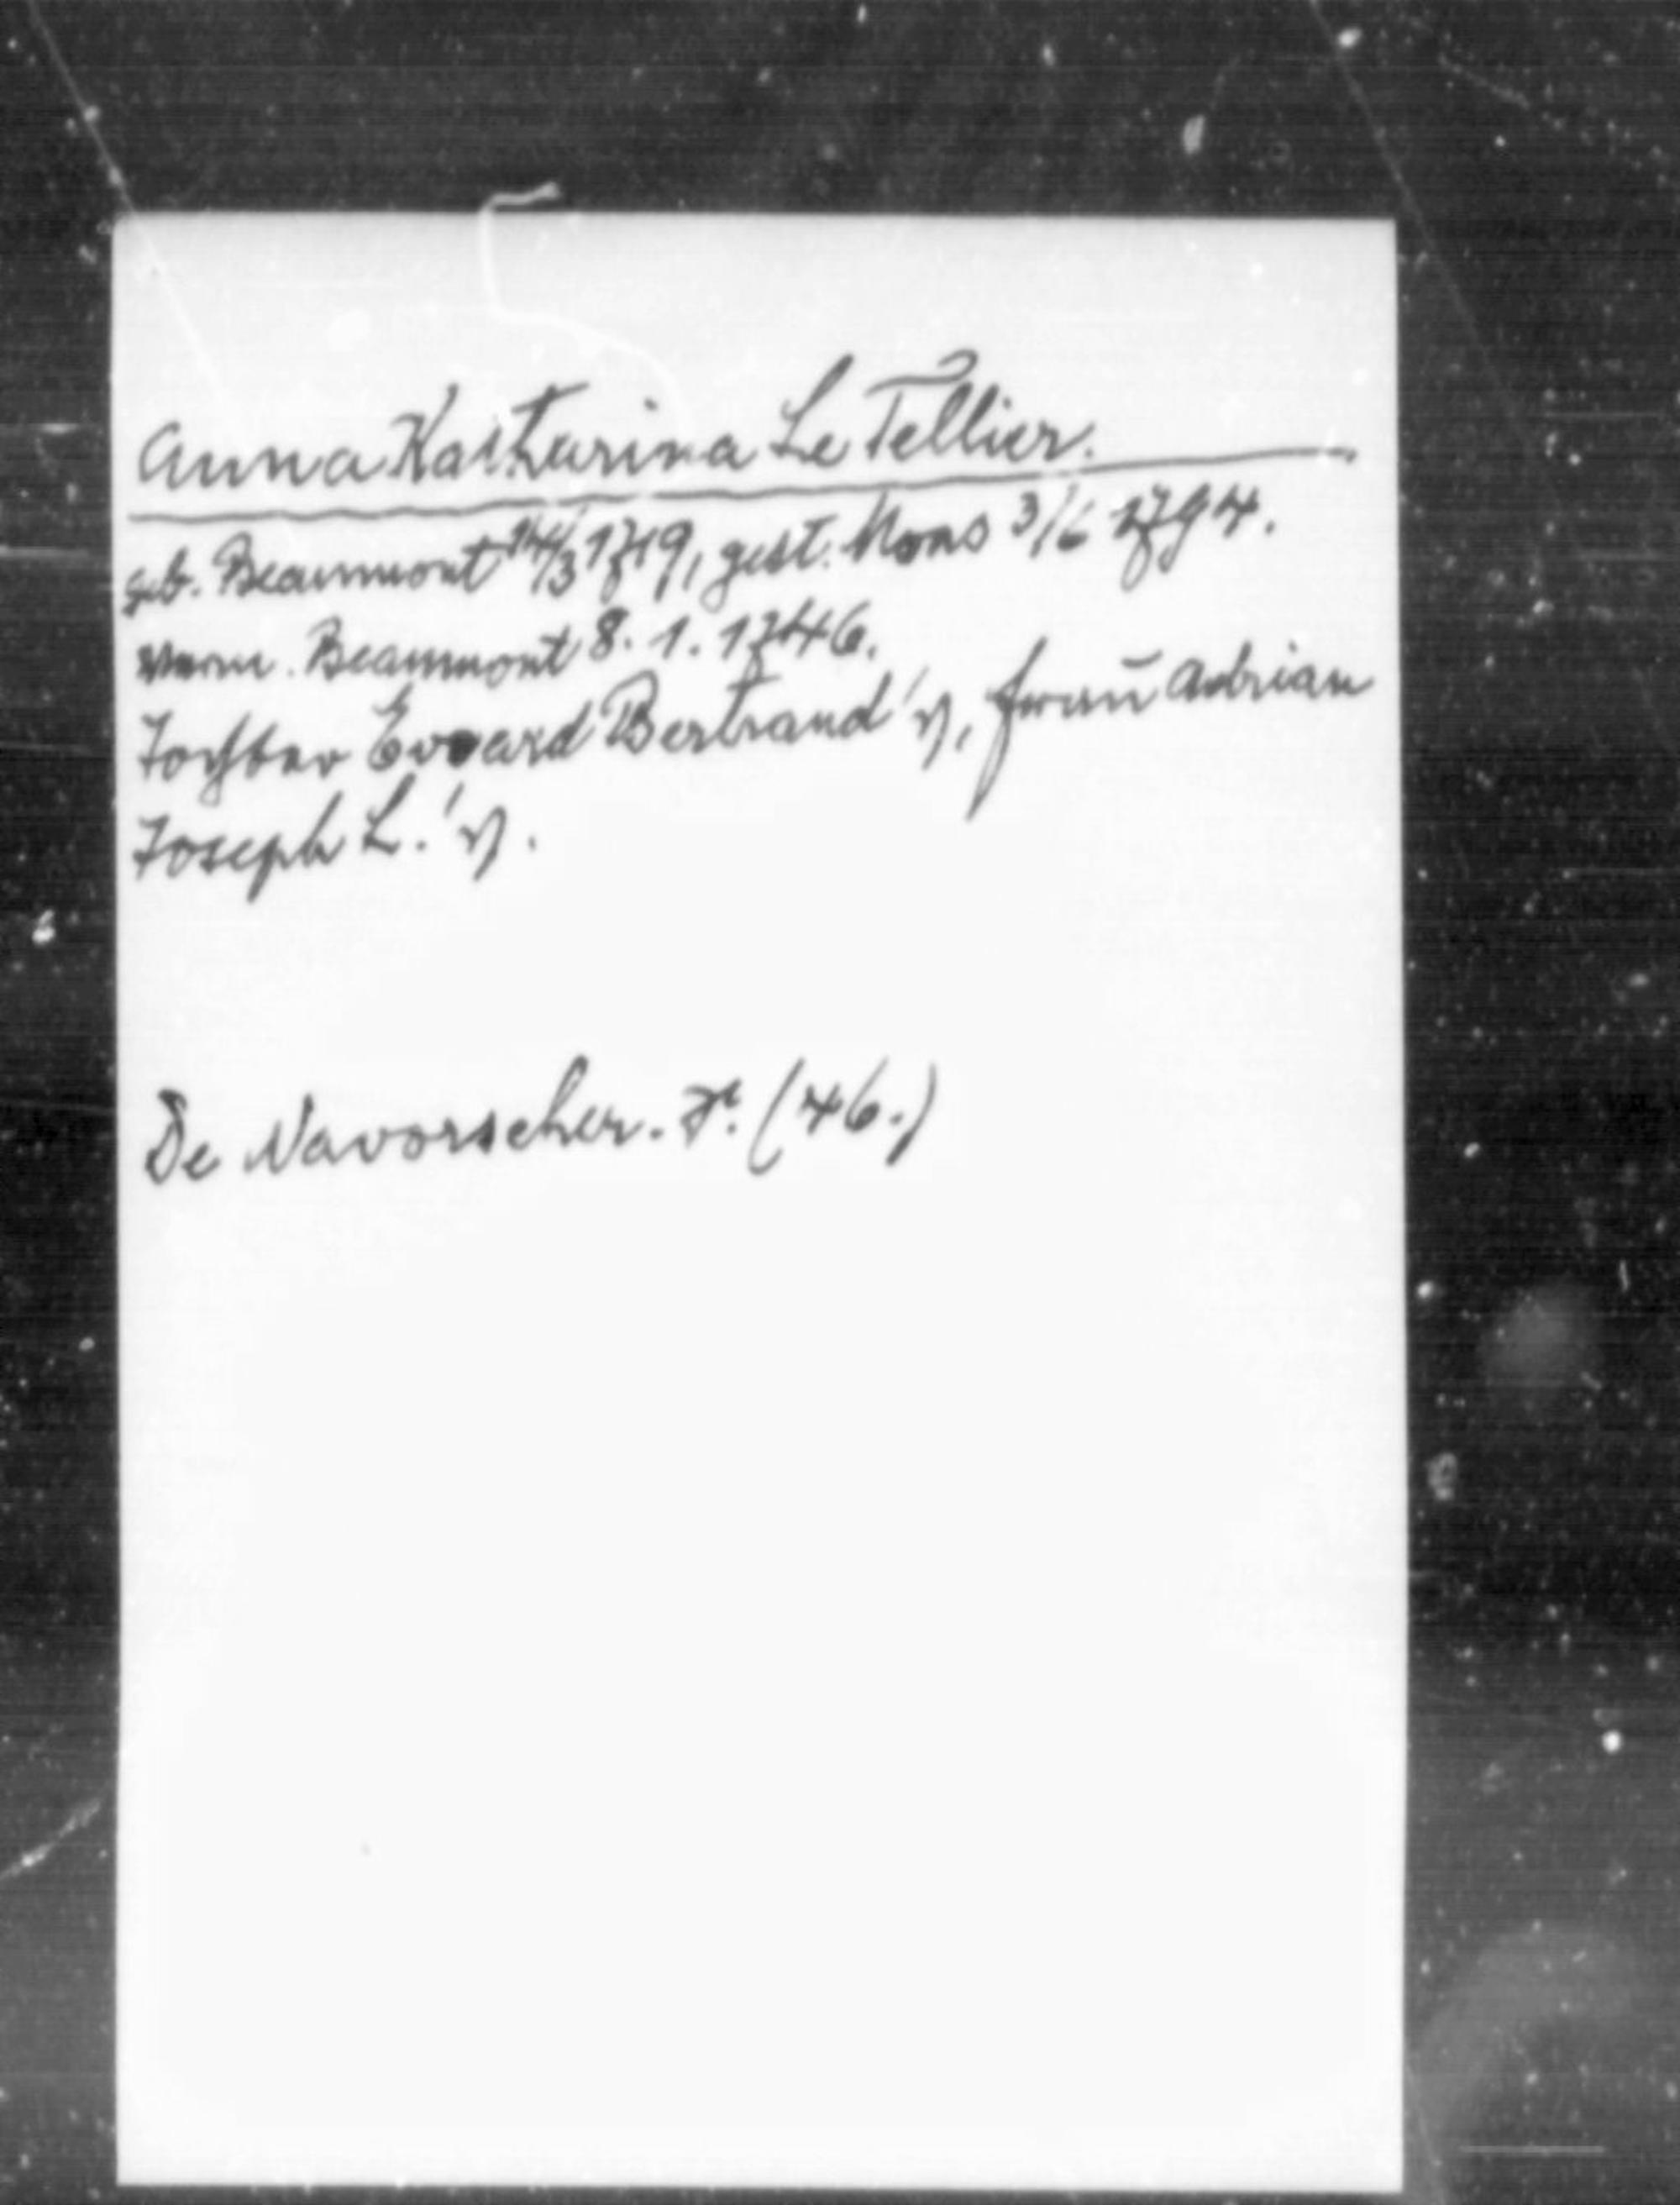 Anna Katharina Le Tellier.
geb. Beaumont 14/3 1719, gest. Mons 3/6 1794.
verm. Beaumont 8. 1. 1746.
Tochter Evrard Bertrand's, Frau Adrian
Joseph L.'s.
De Navorscher. (46.)